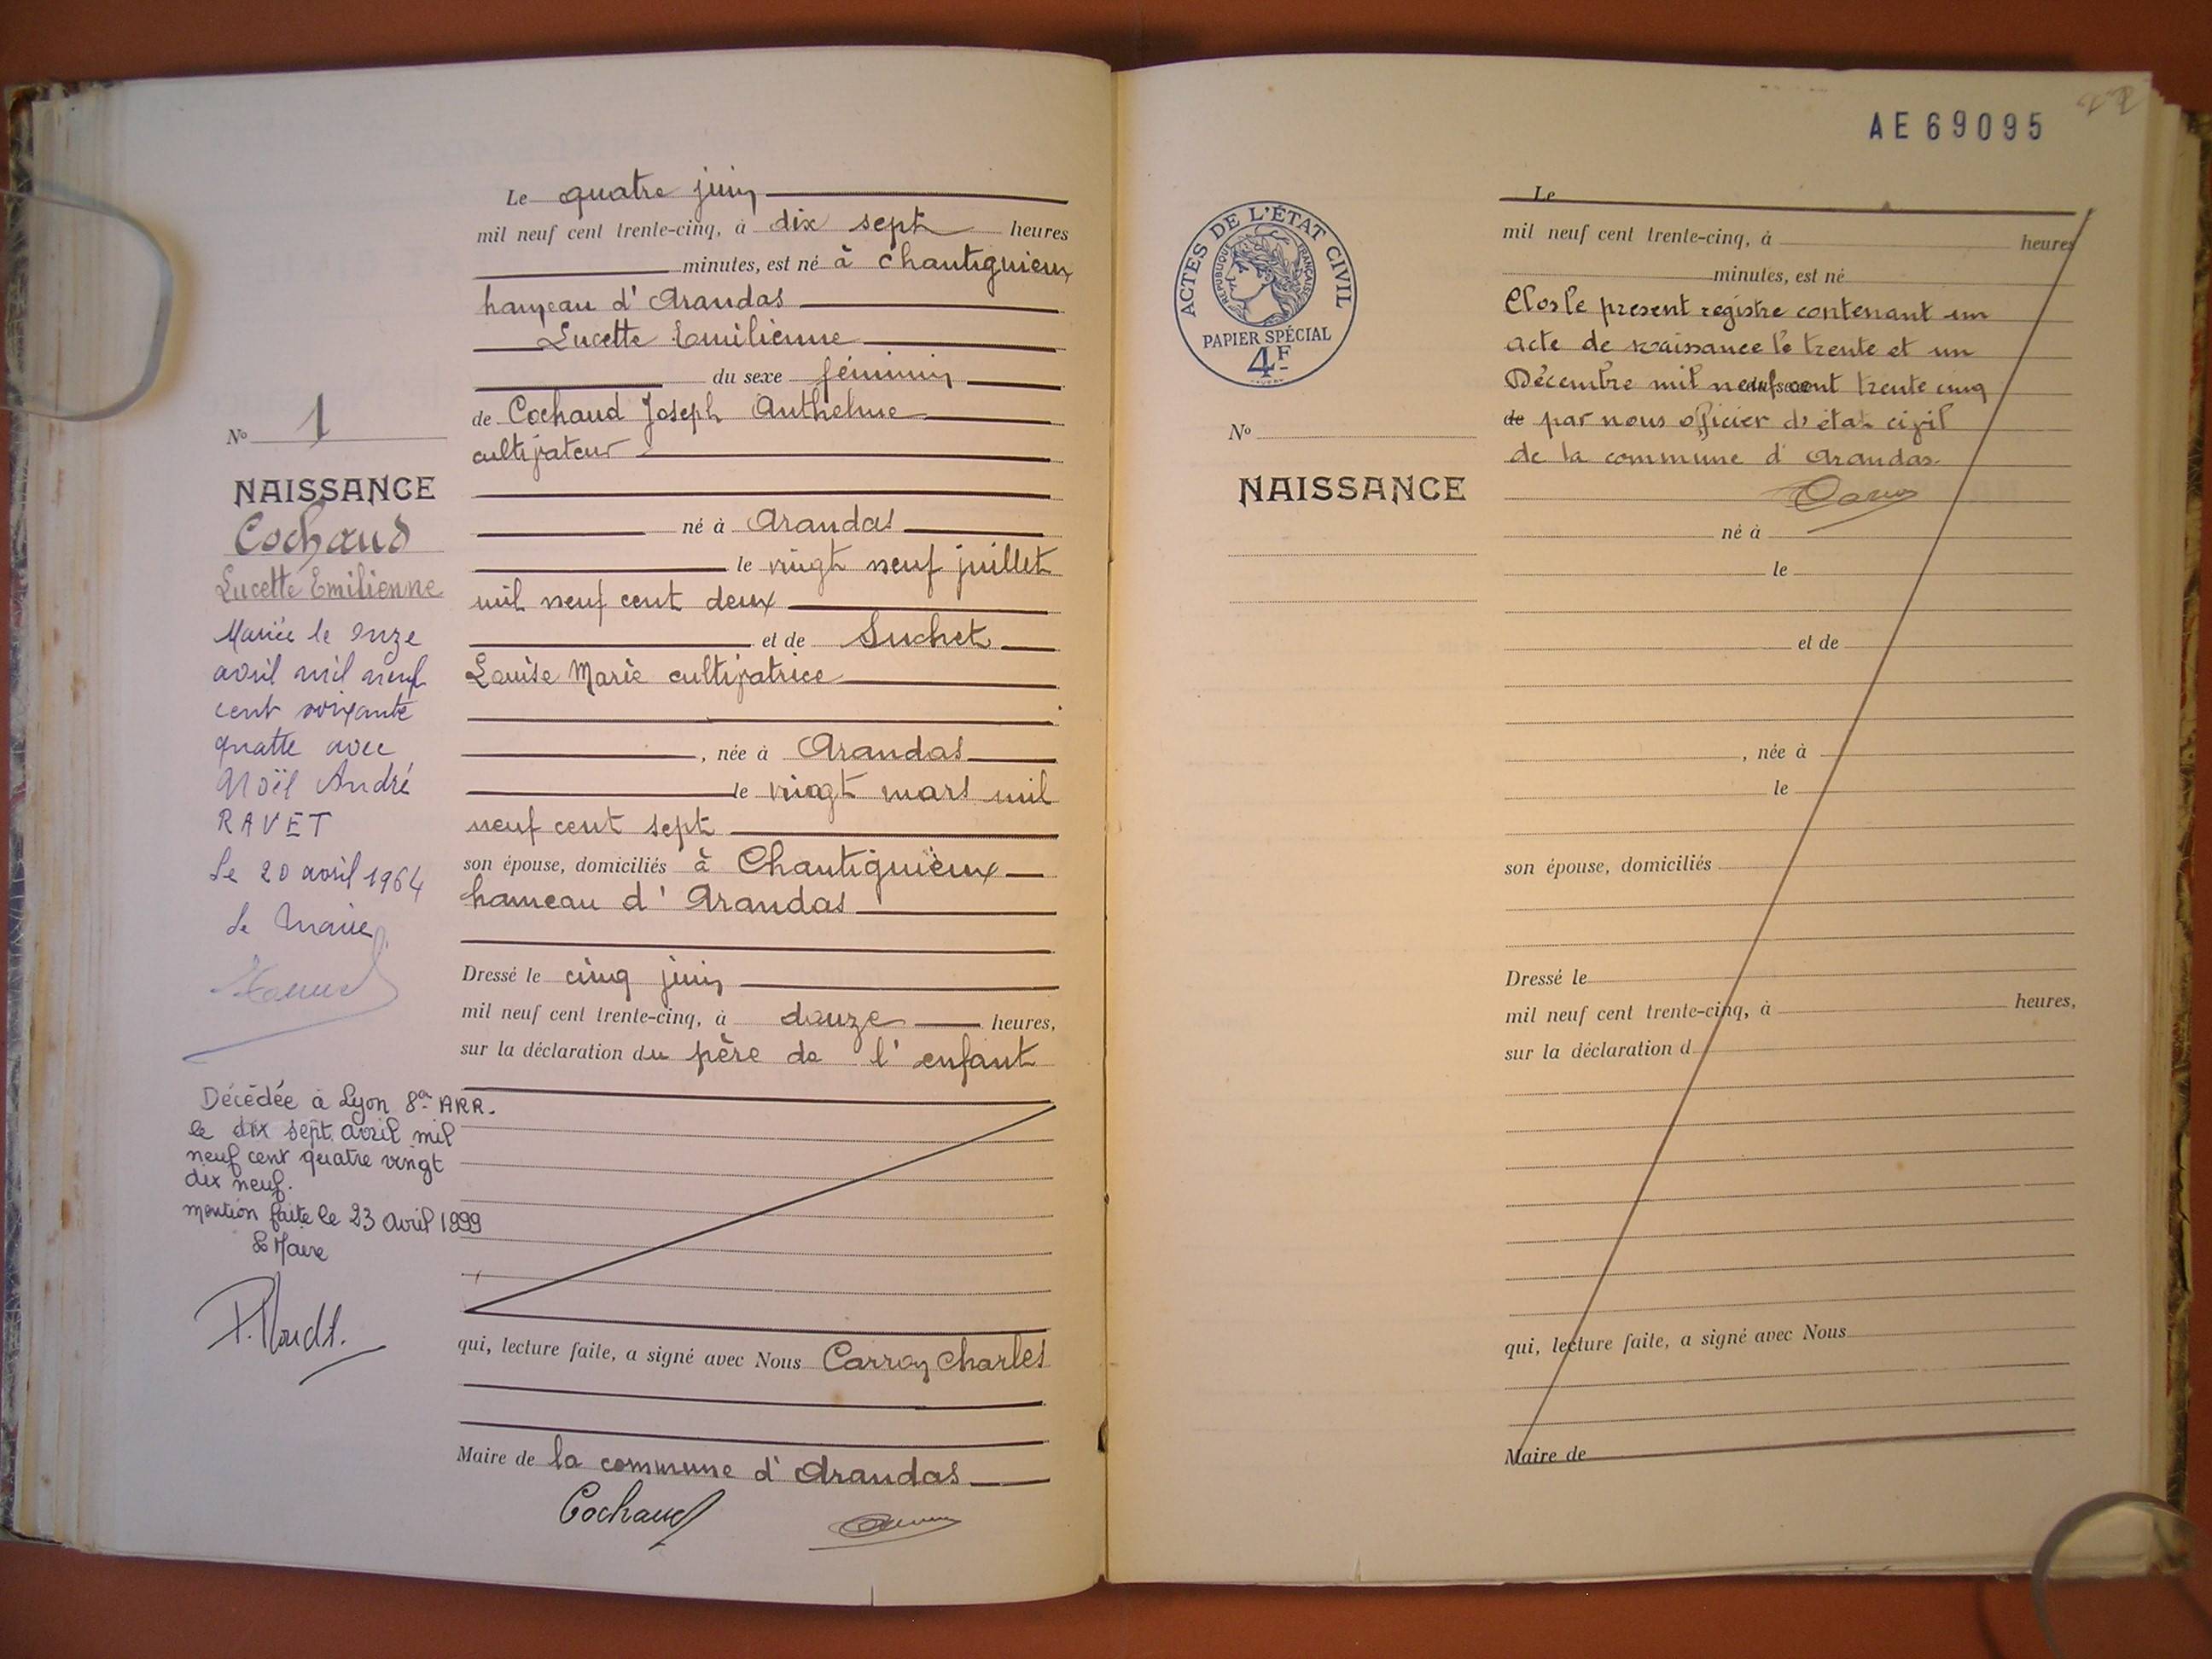 Le quatre juin
mil neuf cent trente-cinq, à dix sept heures
minutes, est né à Chantiguieux
hameau d'Arandas
Lucette Emilienne
du sexe féminin
de Cochaud Joseph Anthelme
cultivateur
né à Arandas
le vingt neuf juillet
mil neuf cent deux
et de Suchet
Louise Marie cultivatrice
, née à Arandas
le vingt mars mil
neuf cent sept
son épouse, domiciliés à Chantiguieux
hameau d'Arandas
Dressé le cinq juin
mil neuf cent trente-cinq, à douze heures,
sur la déclaration du père de l'enfant
qui, lecture faite, a signé avec Nous Carron Charles
Maire de la commune d'Arandas
Cochaud
No 1
NAISSANCE
Cochaud
Lucette Emilienne
Mariée le onze
avril mil neuf
cent soixante
quatre avec
Noël André
RAVET
Le 20 avril 1964
Le Maire
Décédée à Lyon 8e ARR.
le dix sept avril mil
neuf cent quatre vingt
dix neuf.
mention faite le 23 avril 1999
Le Maire
AE69095
22
ACTES DE L'ÉTAT CIVIL
REPUBLIQUE FRANÇAISE
PAPIER SPÉCIAL
4F
No
NAISSANCE
Le
mil neuf cent trente-cinq, à heures
minutes, est né
Clos le present registre contenant un
acte de naissance le trente et un
Décembre mil neuf cent trente cinq
de par nous officier d'état civil
de la commune d'Arandas
né à
le
et de
, née à
le
son épouse, domiciliés
Dressé le
mil neuf cent trente-cinq, à heures,
sur la déclaration d
qui, lecture faite, a signé avec Nous
Maire de